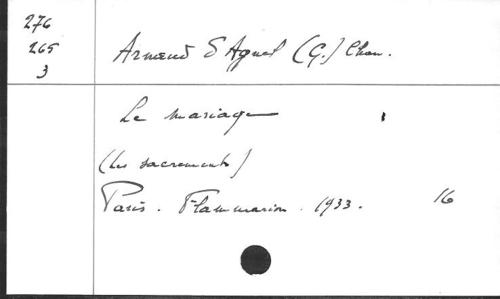 276
265
3
Arnaud d'Agnel (G.) Chan.
Le mariage
(Les sacrements)
Paris. Flammarion. 1933. 16